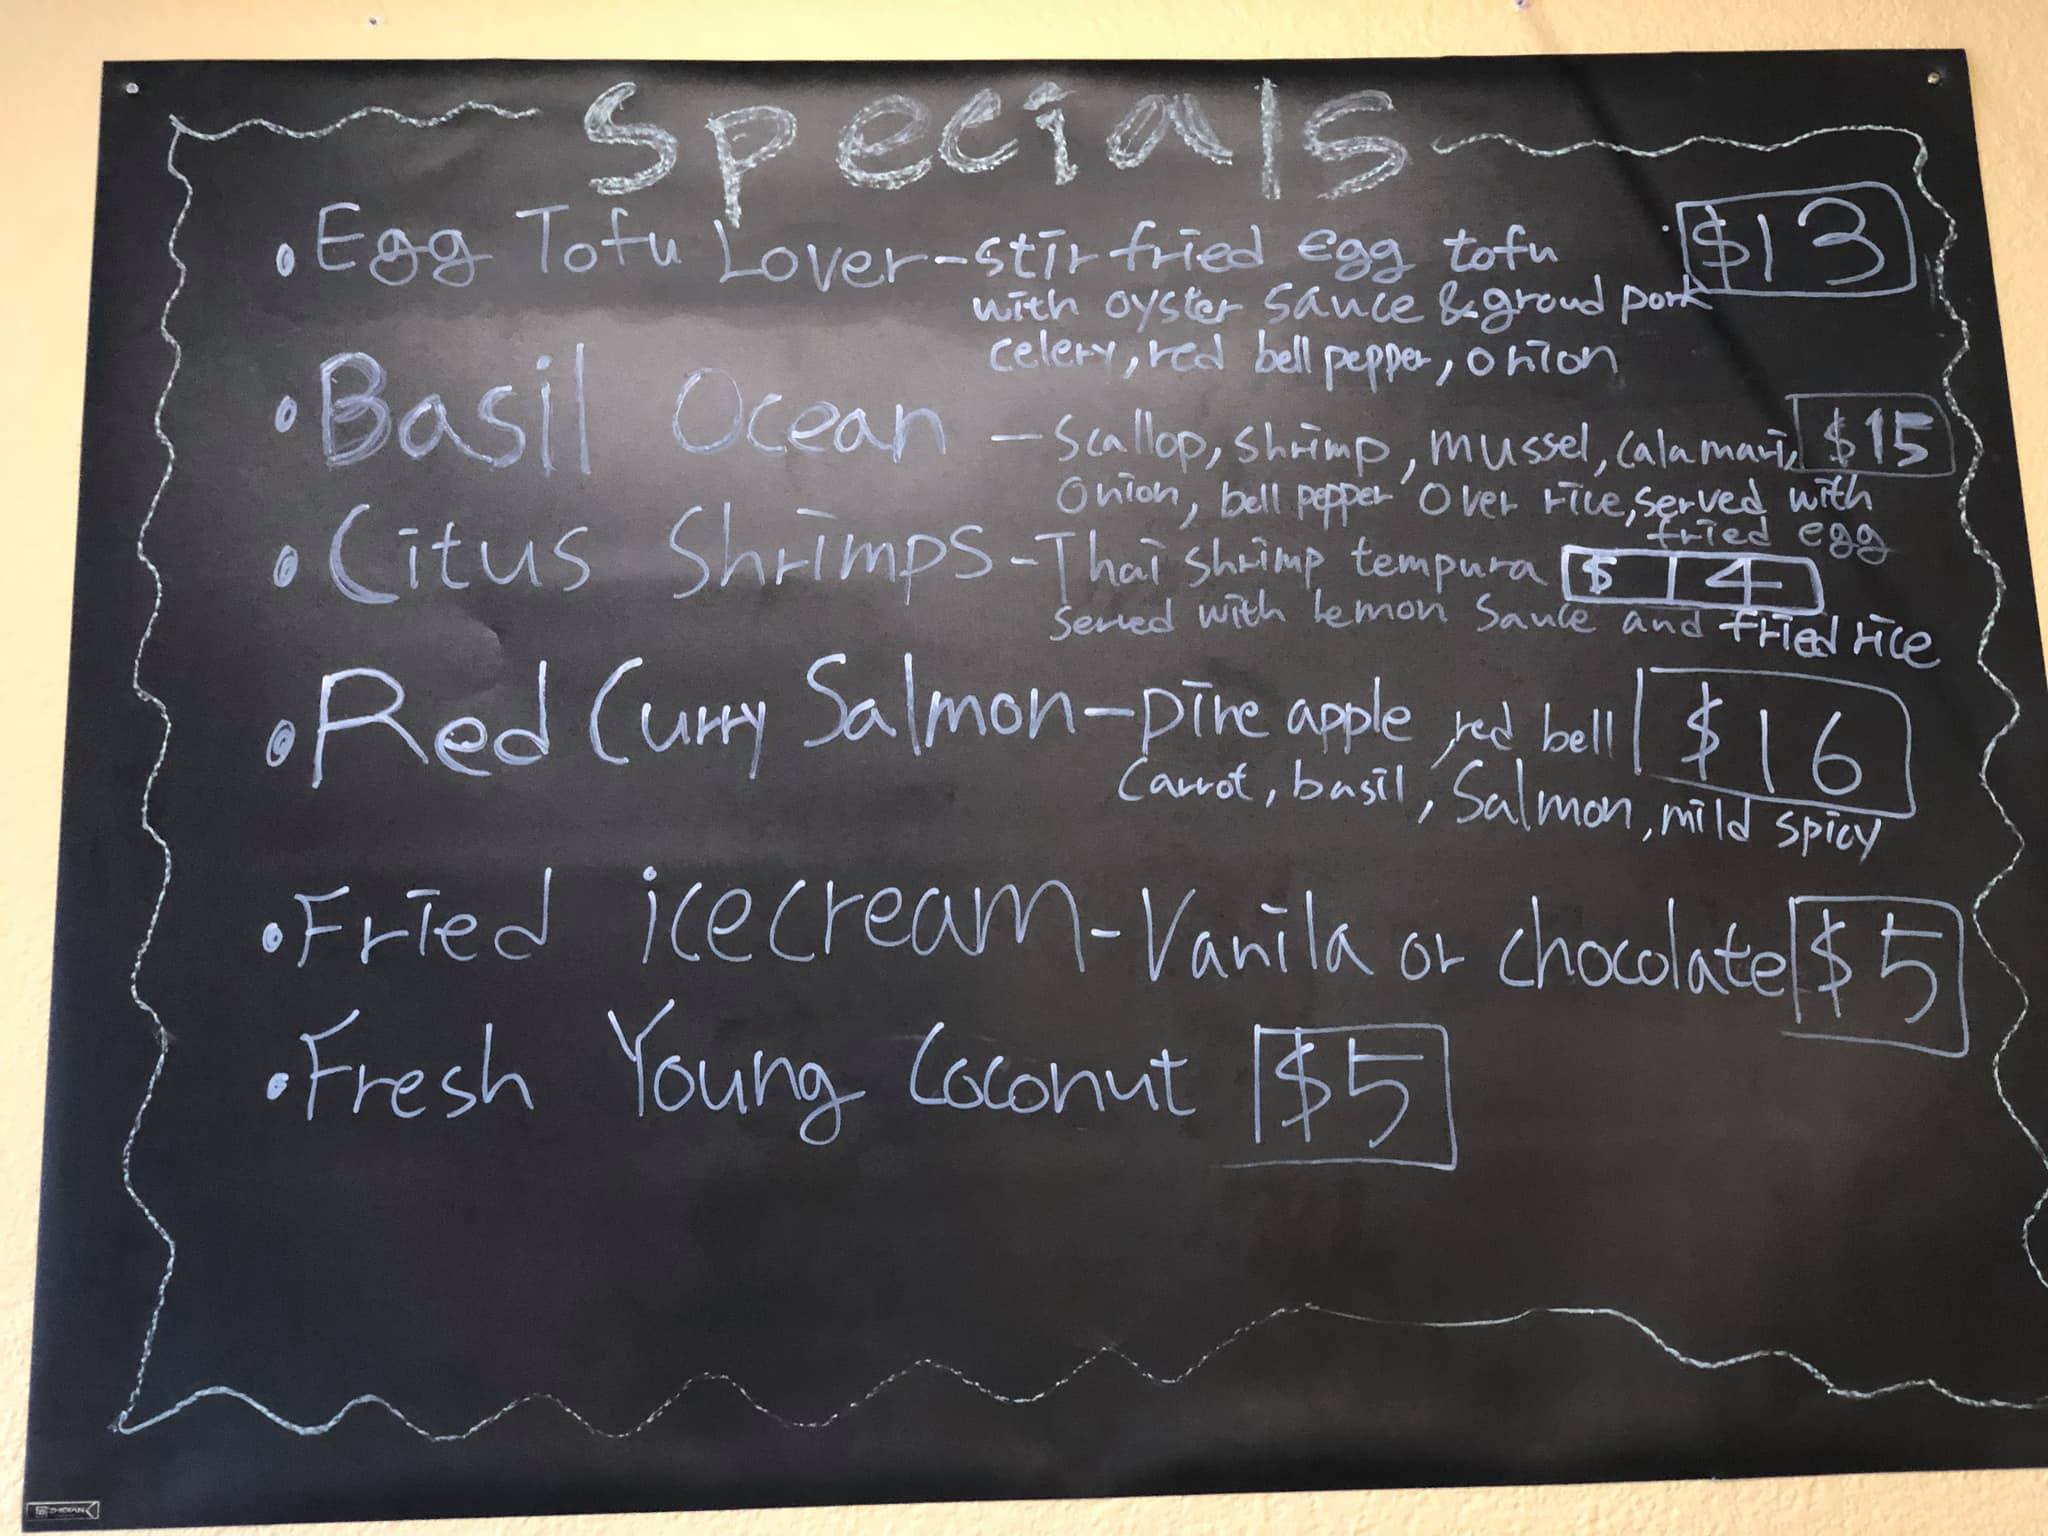 Specials
• Egg Tofu Lover - stir fried egg tofu $13
with oyster sauce & groud pork
celery, red bell pepper, onion
• Basil Ocean - Scallop, shrimp, mussel, calamari, $15
Onion, bell pepper over rice, served with
fried egg
• Citus Shrimps - Thai shrimp tempura $14
served with lemon sauce and fried rice
• Red Curry Salmon - pineapple, red bell $16
Carrot, basil, Salmon, mild spicy
• Fried icecream - Vanila or chocolate $5
• Fresh Young Coconut $5